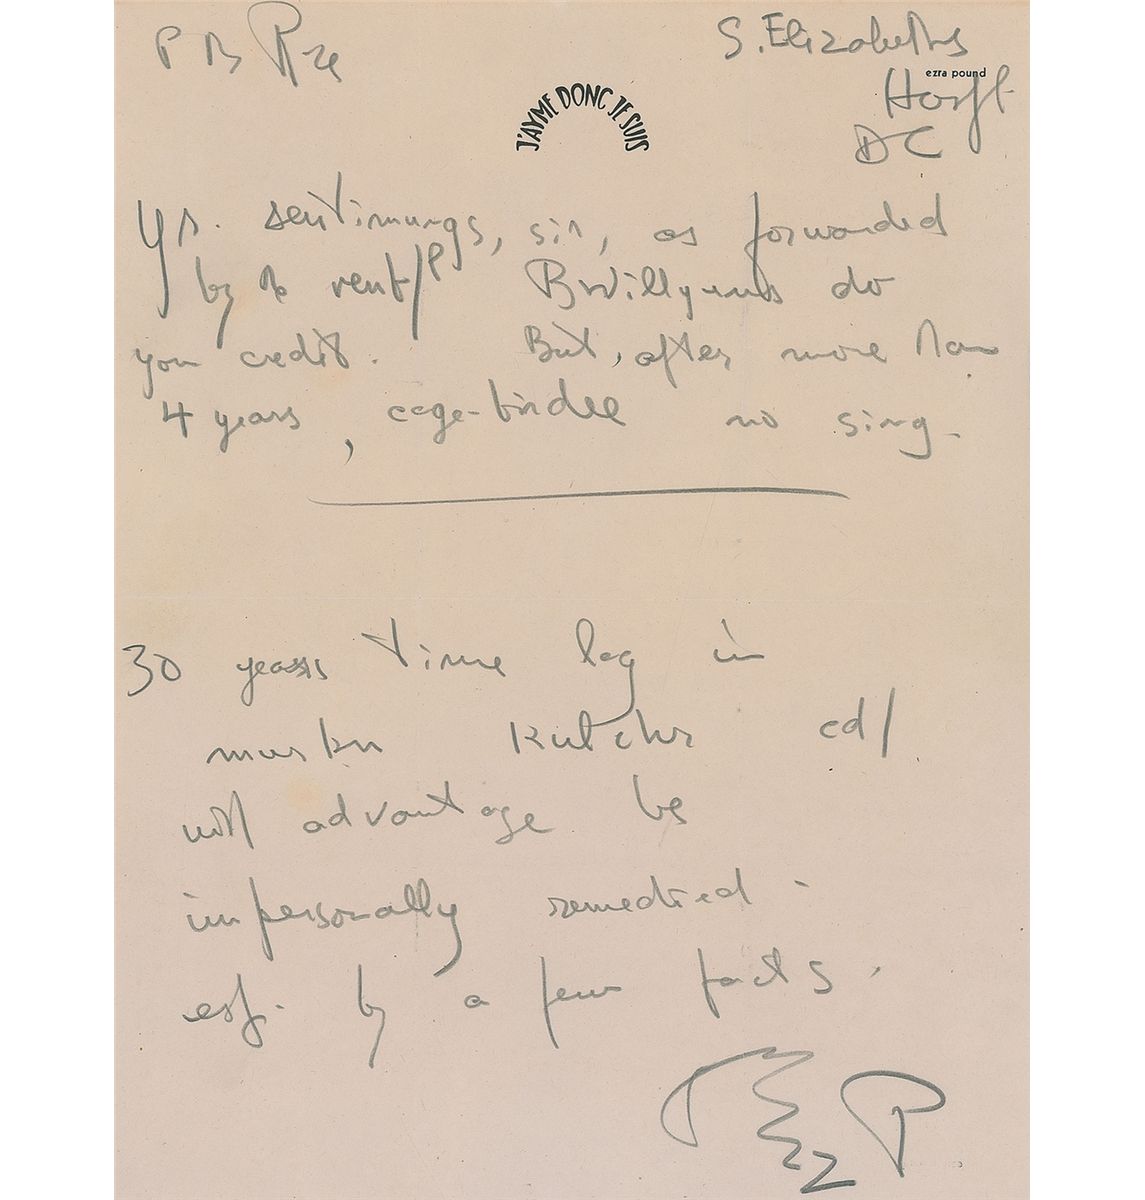 P B Rze
S. Elizabeths
ezra pound
Hospt
DC
J'AYME DONC JE SUIS
Yr. sentimungs, sir, as forwarded
by to revt/P Bwillyums do
you credit. But, after more than
4 years, cage-birdee no sing-
30 years time lag in
murkn Kulchr cd/
with advantage be
impersonally remedied -
esp. by a few facts.
Ez P